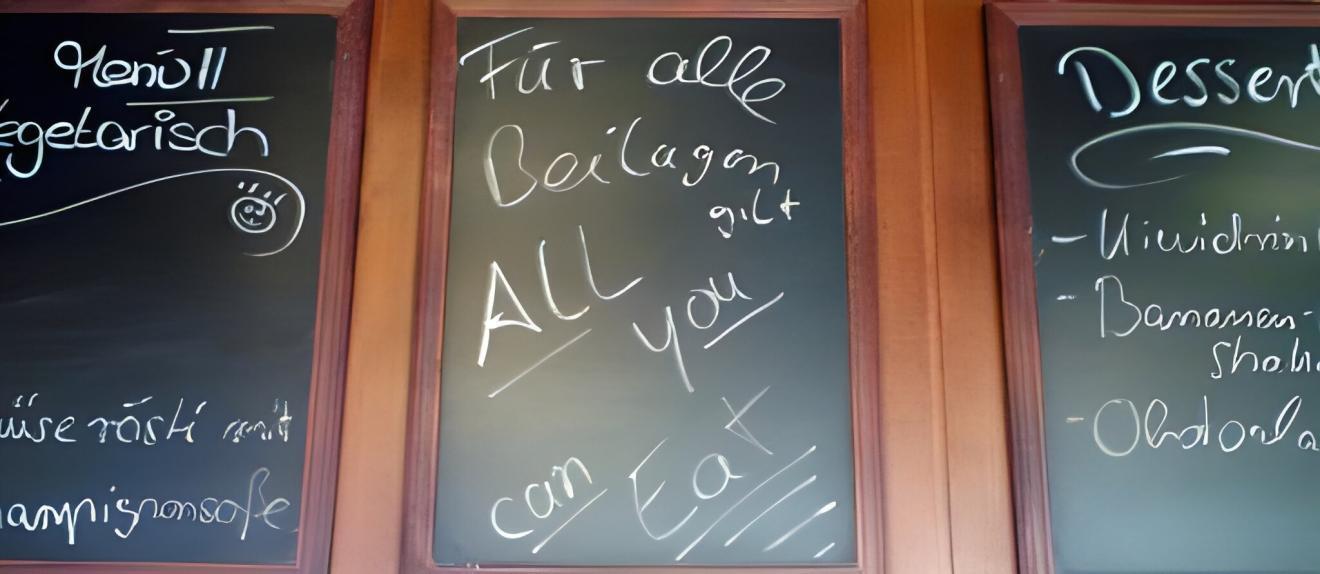 Menü II
egetarisch
üse rösti mit
ampignonsoße
Für alle
Beilagen
gilt
ALL you
can Eat
Dessert
- Kiwidrin
- Bananen-
Shak